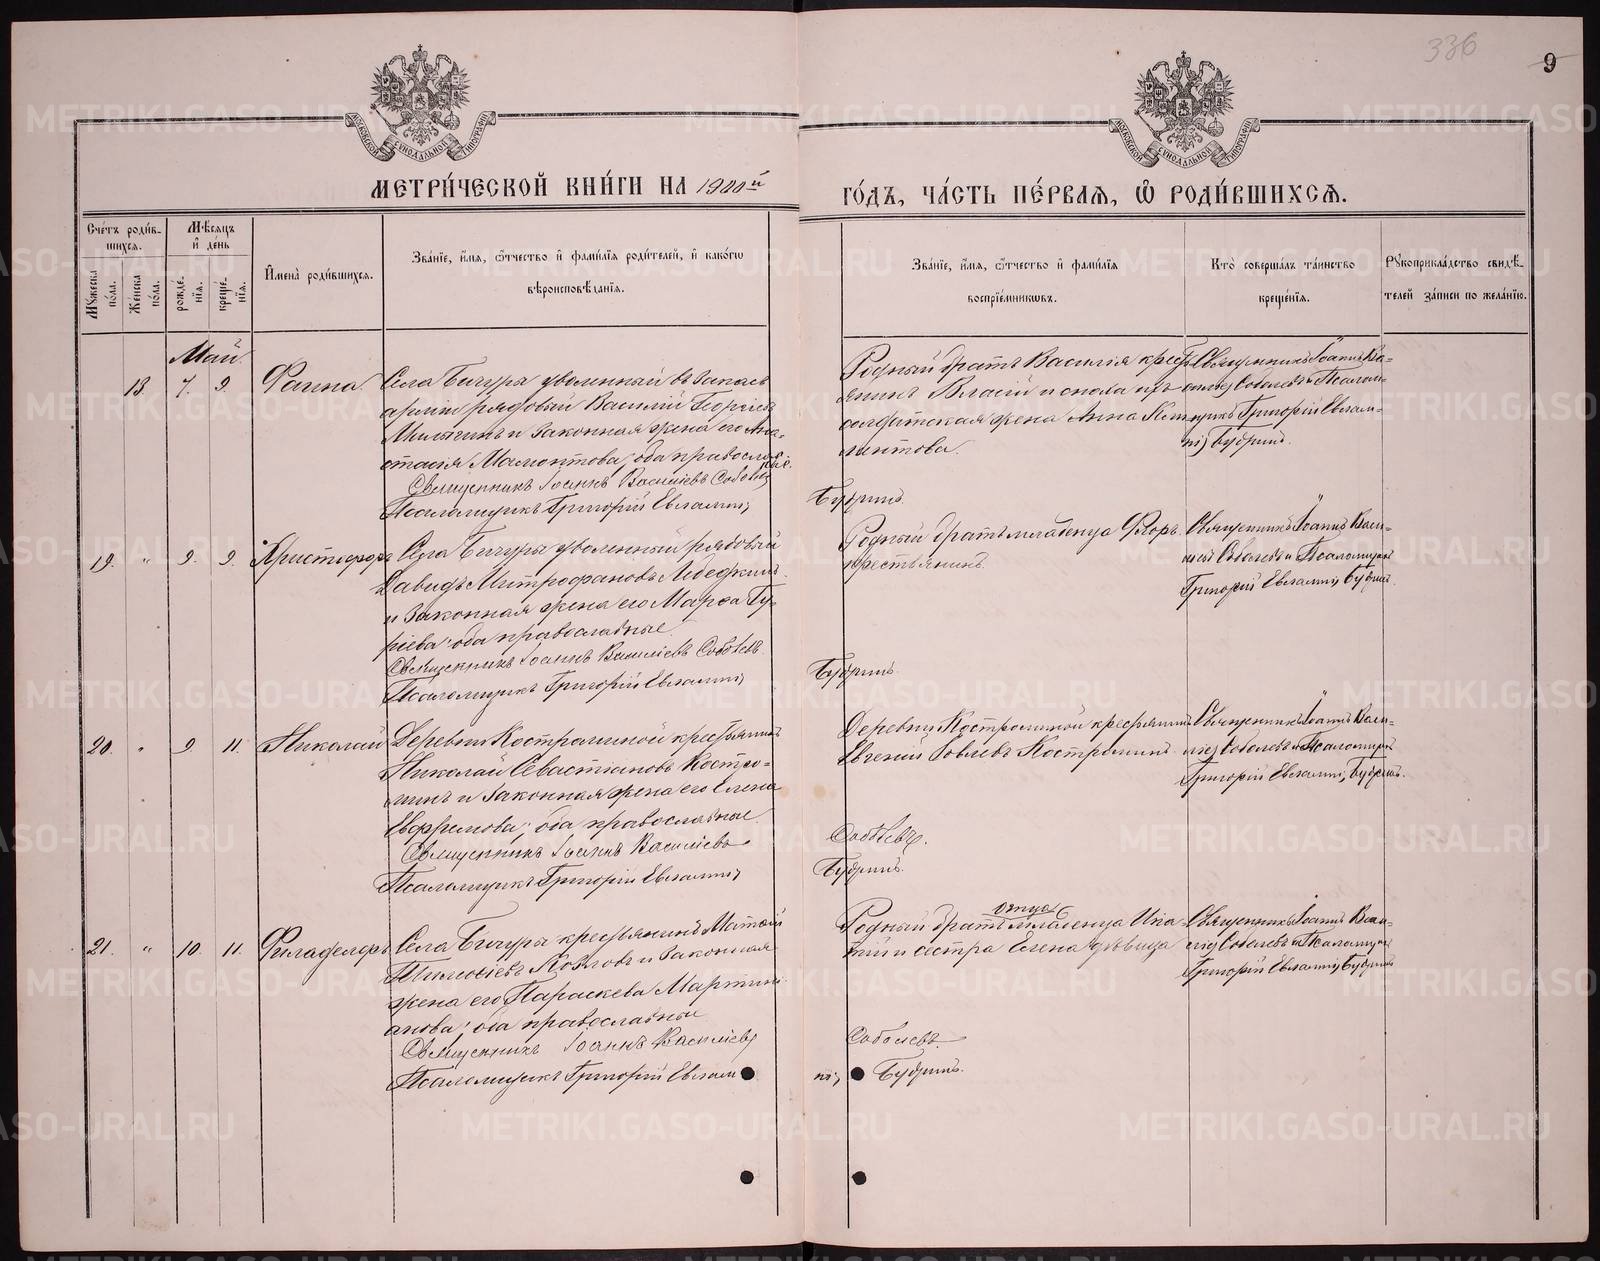 336
9
МОСКОВСКОЙ СѴНОДАЛЬНОЙ ТИПОГРАФІИ
МОСКОВСКОЙ СѴНОДАЛЬНОЙ ТИПОГРАФІИ
МЕТРИ́ЧЕСКОЙ КНИ́ГИ НА 1900й
ГО́ДЪ, ЧА́СТЬ ПЕ́РВАѦ, Ѡ РОДИ́ВШИХСѦ.
Счетъ роди́в-
шихся.
Мꙋжеска по́ла.
Же́нска по́ла.
Мѣ́сяцъ и де́нь
рожде-
нія.
креще-
нія.
Имена̀ роди́вшихся.
Зва́ніе, и́мя, ѿтчество и фами́лія роди́телей, и како́гѡ
вѣроисповѣ́данія.
Зва́ніе, и́мя, ѿтчество и фами́лія
воспріе́мниковъ.
Кто̀ соверша́лъ та́инство
креще́нія.
Рꙋкоприкла́дство свидѣ́-
телей за́писи по жела́нію.
Май.
13. 7. 9. Фаина. Села Бичуры уволенный въ запасъ
арміи рядовый Василій Георгіевъ
и законная жена его Ана-
стасія Мамонтова; оба православные.
Священникъ Іоаннъ Василіевъ Соболевъ
Псаломщикъ Григорій Евлампі;
Родный братъ Василія крест-
янинъ Власій и
солдатская жена Анна
Священникъ Іоаннъ Ва-
силіе) Соболевъ и Псалом-
щикъ Григорій Евлам-
пі) Будринъ.
Будринъ.
19. " 9. 9. Христофоръ Села Бичуры уволенный рядовый
Давидъ Митрофановъ
и законная жена его Марѳа Гу-
ріева; оба православные.
Священникъ Іоаннъ Василіевъ Соболевъ
Псаломщикъ Григорій Евлампі;
Родный братъ младенца Флоръ
крестьянинъ.
Священникъ Іоаннъ Васи-
ліевъ Соболевъ и Псаломщикъ
Григорій Евлампі; Будринъ.
Будринъ.
20. " 9. 11. Николай Деревни Костроминой крестьянинъ
Николай Севастіановъ Костро-
минъ и законная жена его Елена
Евфремова; оба православные.
Священникъ Іоаннъ Василіевъ
Псаломщикъ Григорій Евлампі;
Деревни Костроминой крестьянинъ
Евгеній Костроминъ.
Священникъ Іоаннъ Васи-
ліе) Соболевъ и Псаломщикъ
Григорій Евлампі; Будринъ.
Соболевъ.
Будринъ.
21. " 10. 11. Филаделфъ Села Бичуры крестьянинъ Матѳій
Тимоѳіевъ Козловъ и законная
жена его Параскева Мартині-
анова; оба православные
Священникъ Іоаннъ Василіев)
Псаломщикъ Григорій Евлам
Родный братъ отца младенца Ипа-
тій и сестра Елена дѣвица
Священникъ Іоаннъ Васи-
ліе) Соболевъ и Псаломщикъ
Григорій Евлампі; Будринъ
Соболевъ.
пі; Будринъ.
METRIKI.GASO-URAL.RU